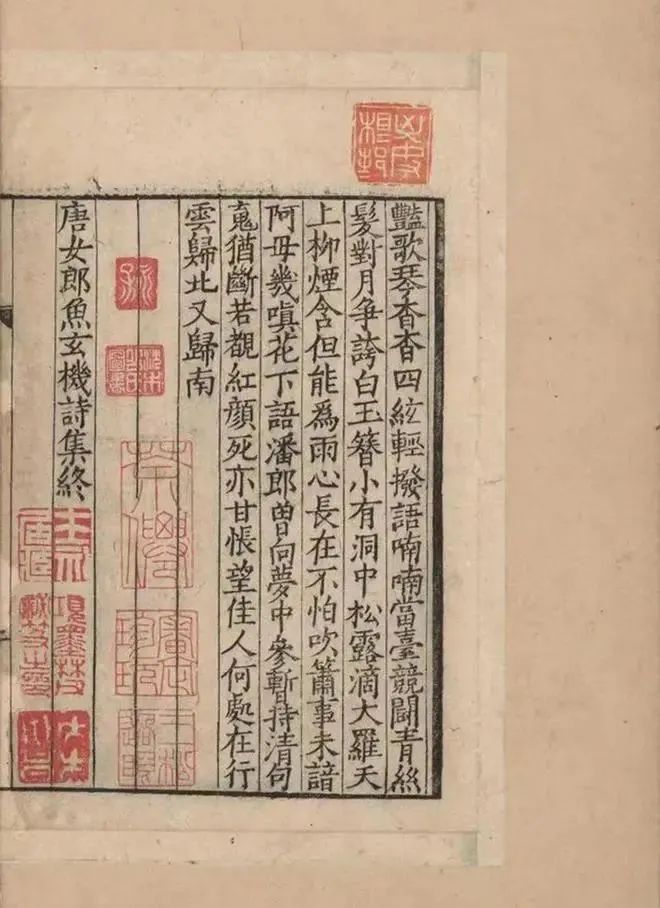 豔歌琴杳杳四絃輕撥語喃喃當臺競鬬青絲
髮對月爭誇白玉簪小有洞中松露滴大羅天
上柳煙含但能爲雨心長在不怕吹簫事未諳
阿母幾嗔花下語潘郎曾向夢中參暫持清句
䰟猶斷若覩紅顔死亦甘悵望佳人何處在行
雲歸北又歸南
唐女郎魚玄機詩集終